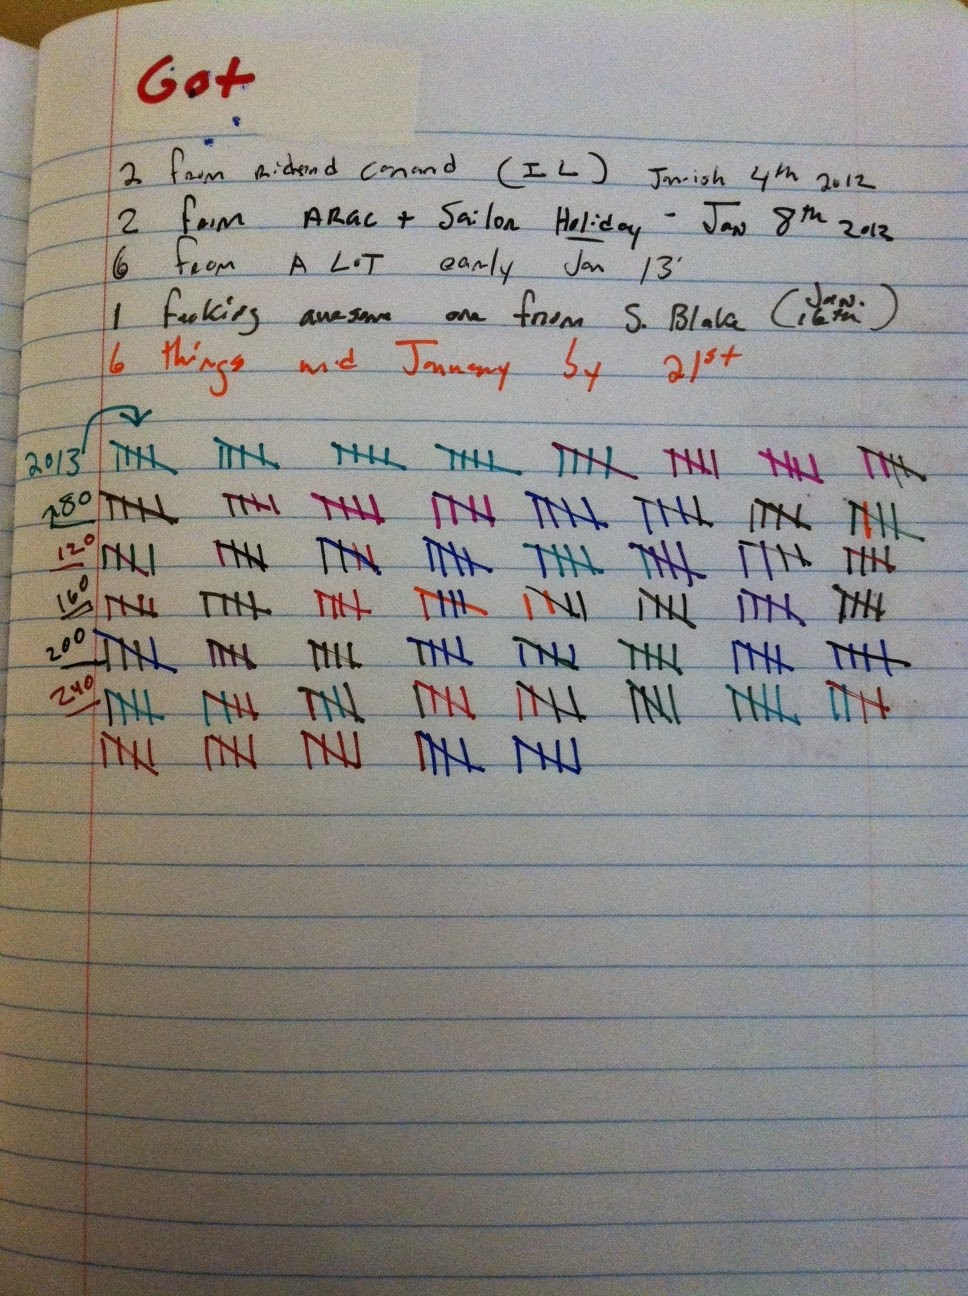 Got
2 from Richard Canard (IL) Janish 4th 2012
2 from ARGC + Sailor Holiday - Jan 8th 2012
6 from A LOT early Jan 13
1 fucking awesome one from S. Blake (Jan. 16th)
6 things mid January by 21st
2013
280
120
160
200
240